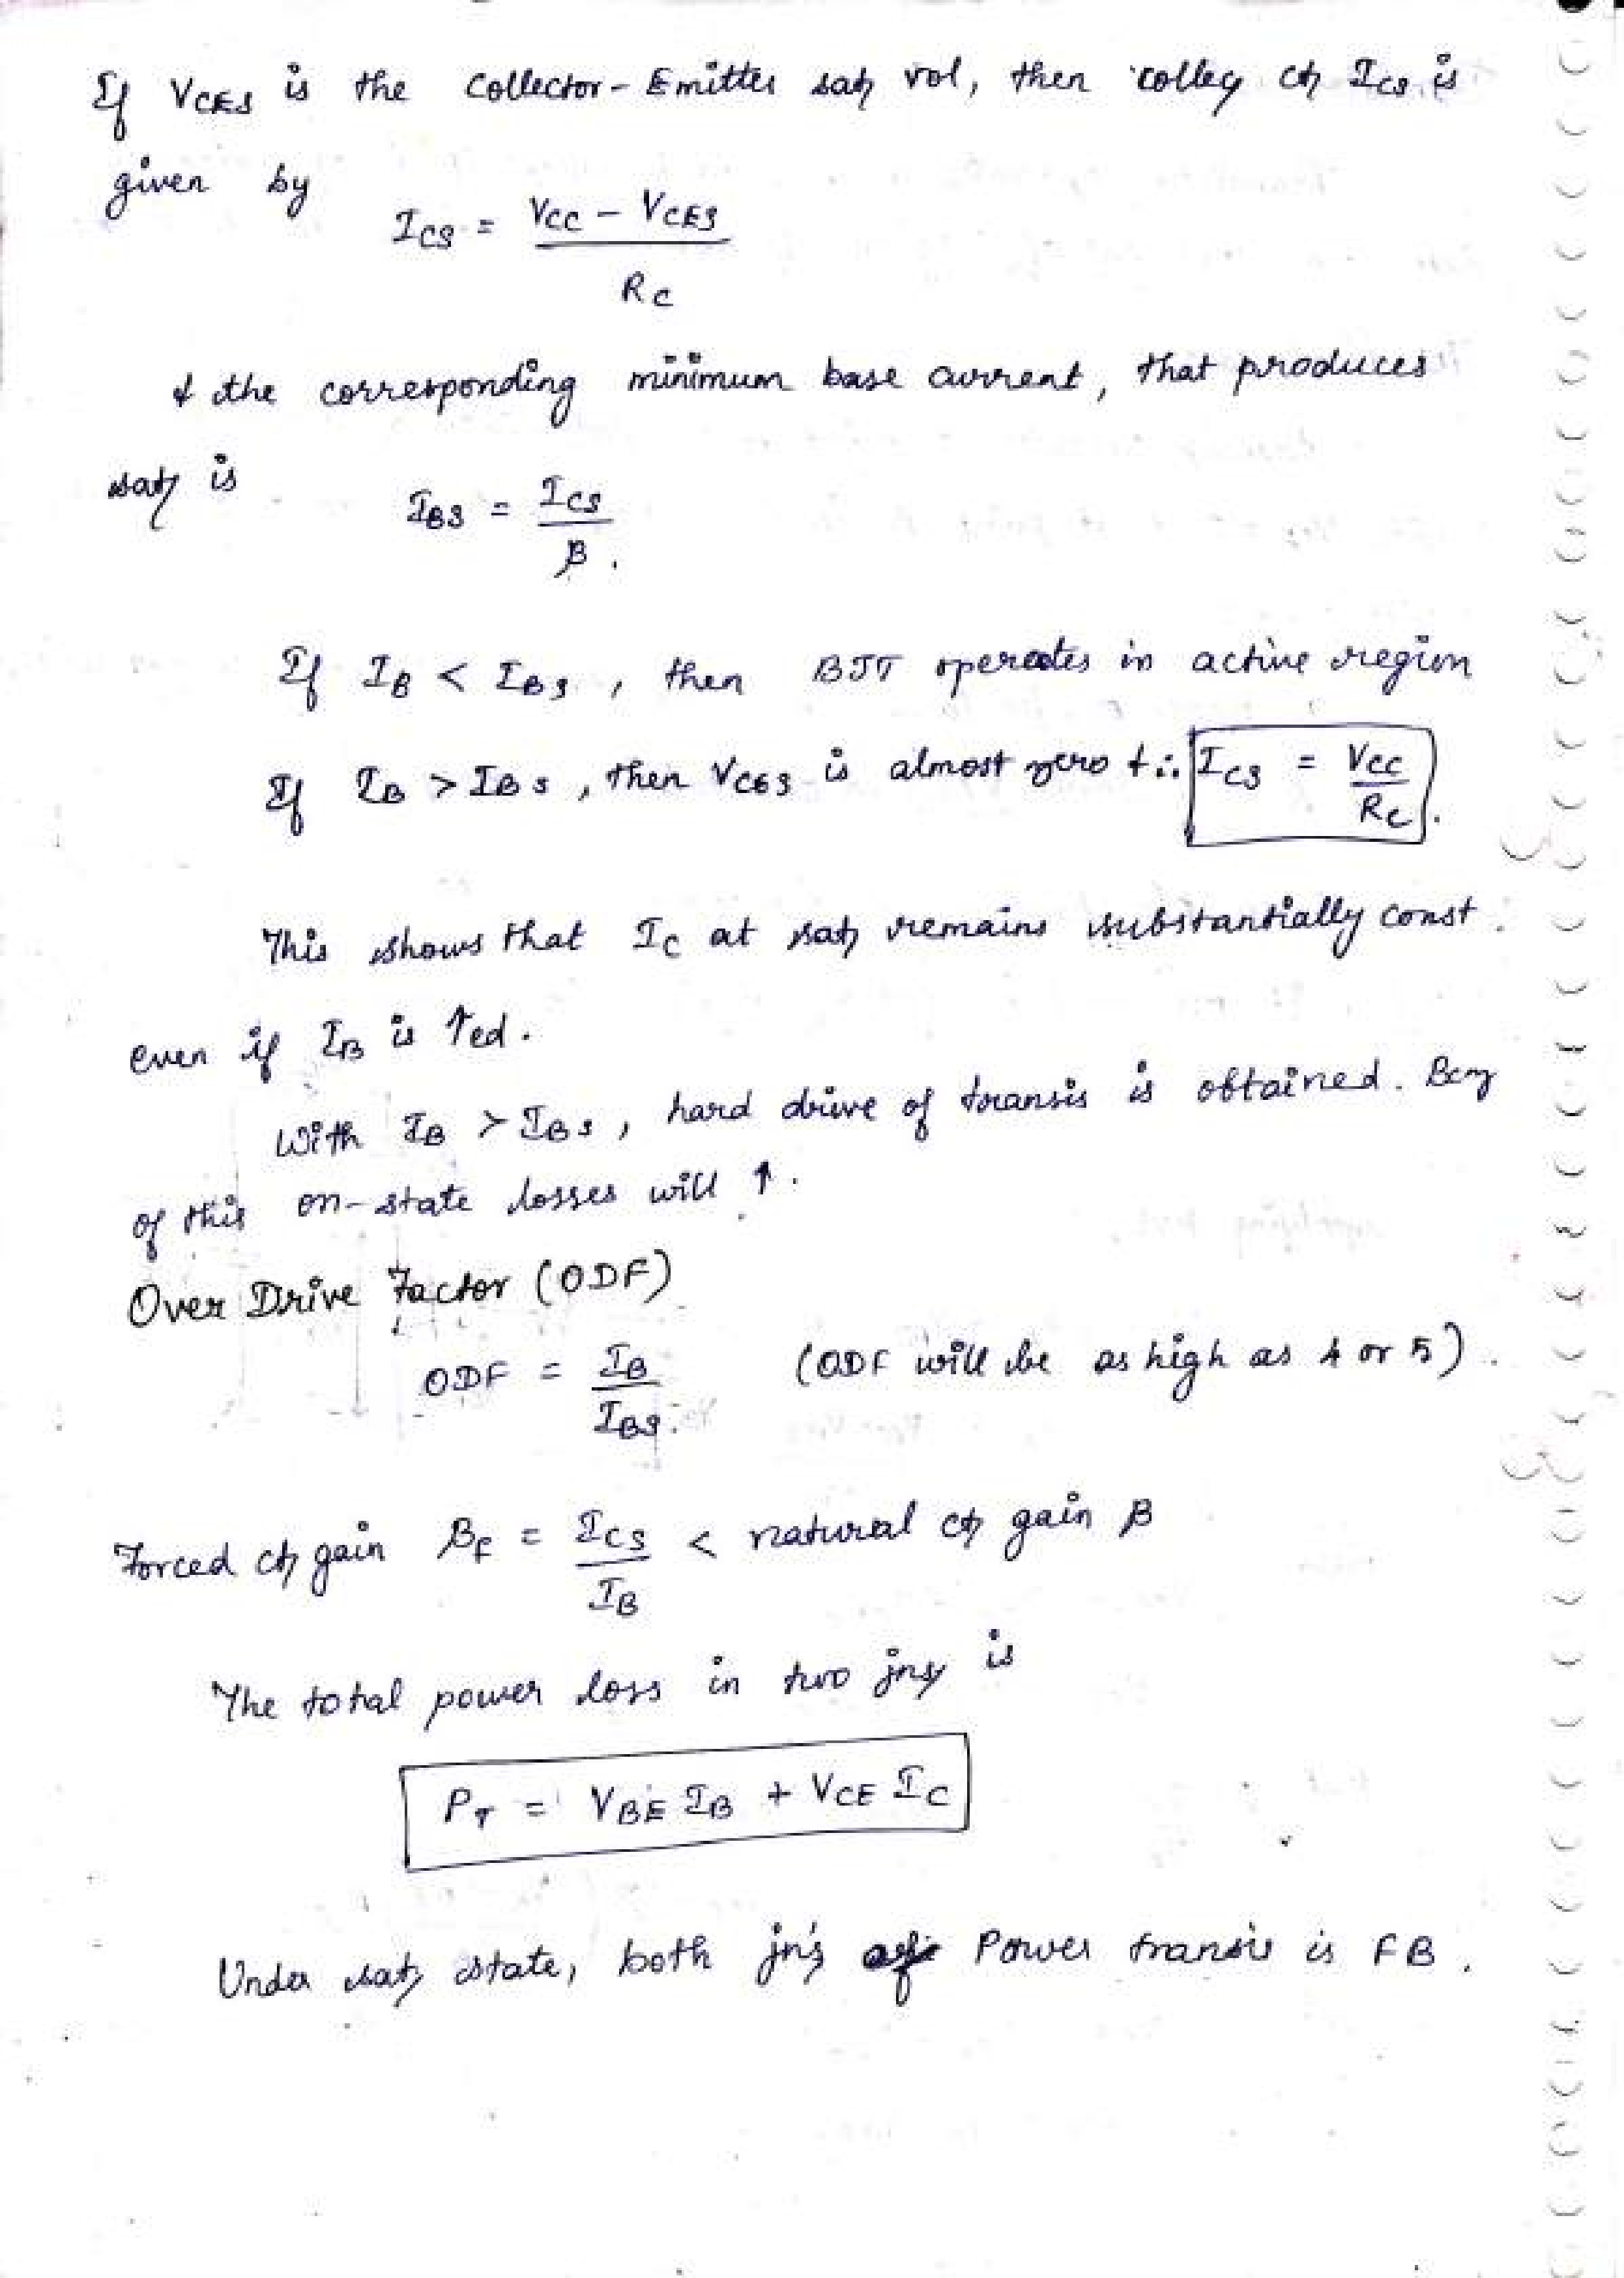 If VCES is the Collector-Emitter satn vol, then collr ct ICS is
given by
ICS = VCC - VCES
RC
& the corresponding minimum base current, that produces
satn is
IBS = ICS
β.
If IB < IBS, then BJT operates in active region
If IB > IBS, then VCES is almost zero & ∴ ICS = VCC
RC.
This shows that IC at satn remains substantially const.
even if IB is ↑ed.
With IB > IBS, hard drive of transis is obtained. Bcz
of this on-state losses will ↑.
Over Drive Factor (ODF)
ODF = IB (ODF will be as high as 4 or 5).
IBS.
Forced ct gain βf = ICS < natural ct gain β
IB
The total power loss in two jns is
PT = VBE IB + VCE IC
Under satn state, both jn's of Power transis is FB.